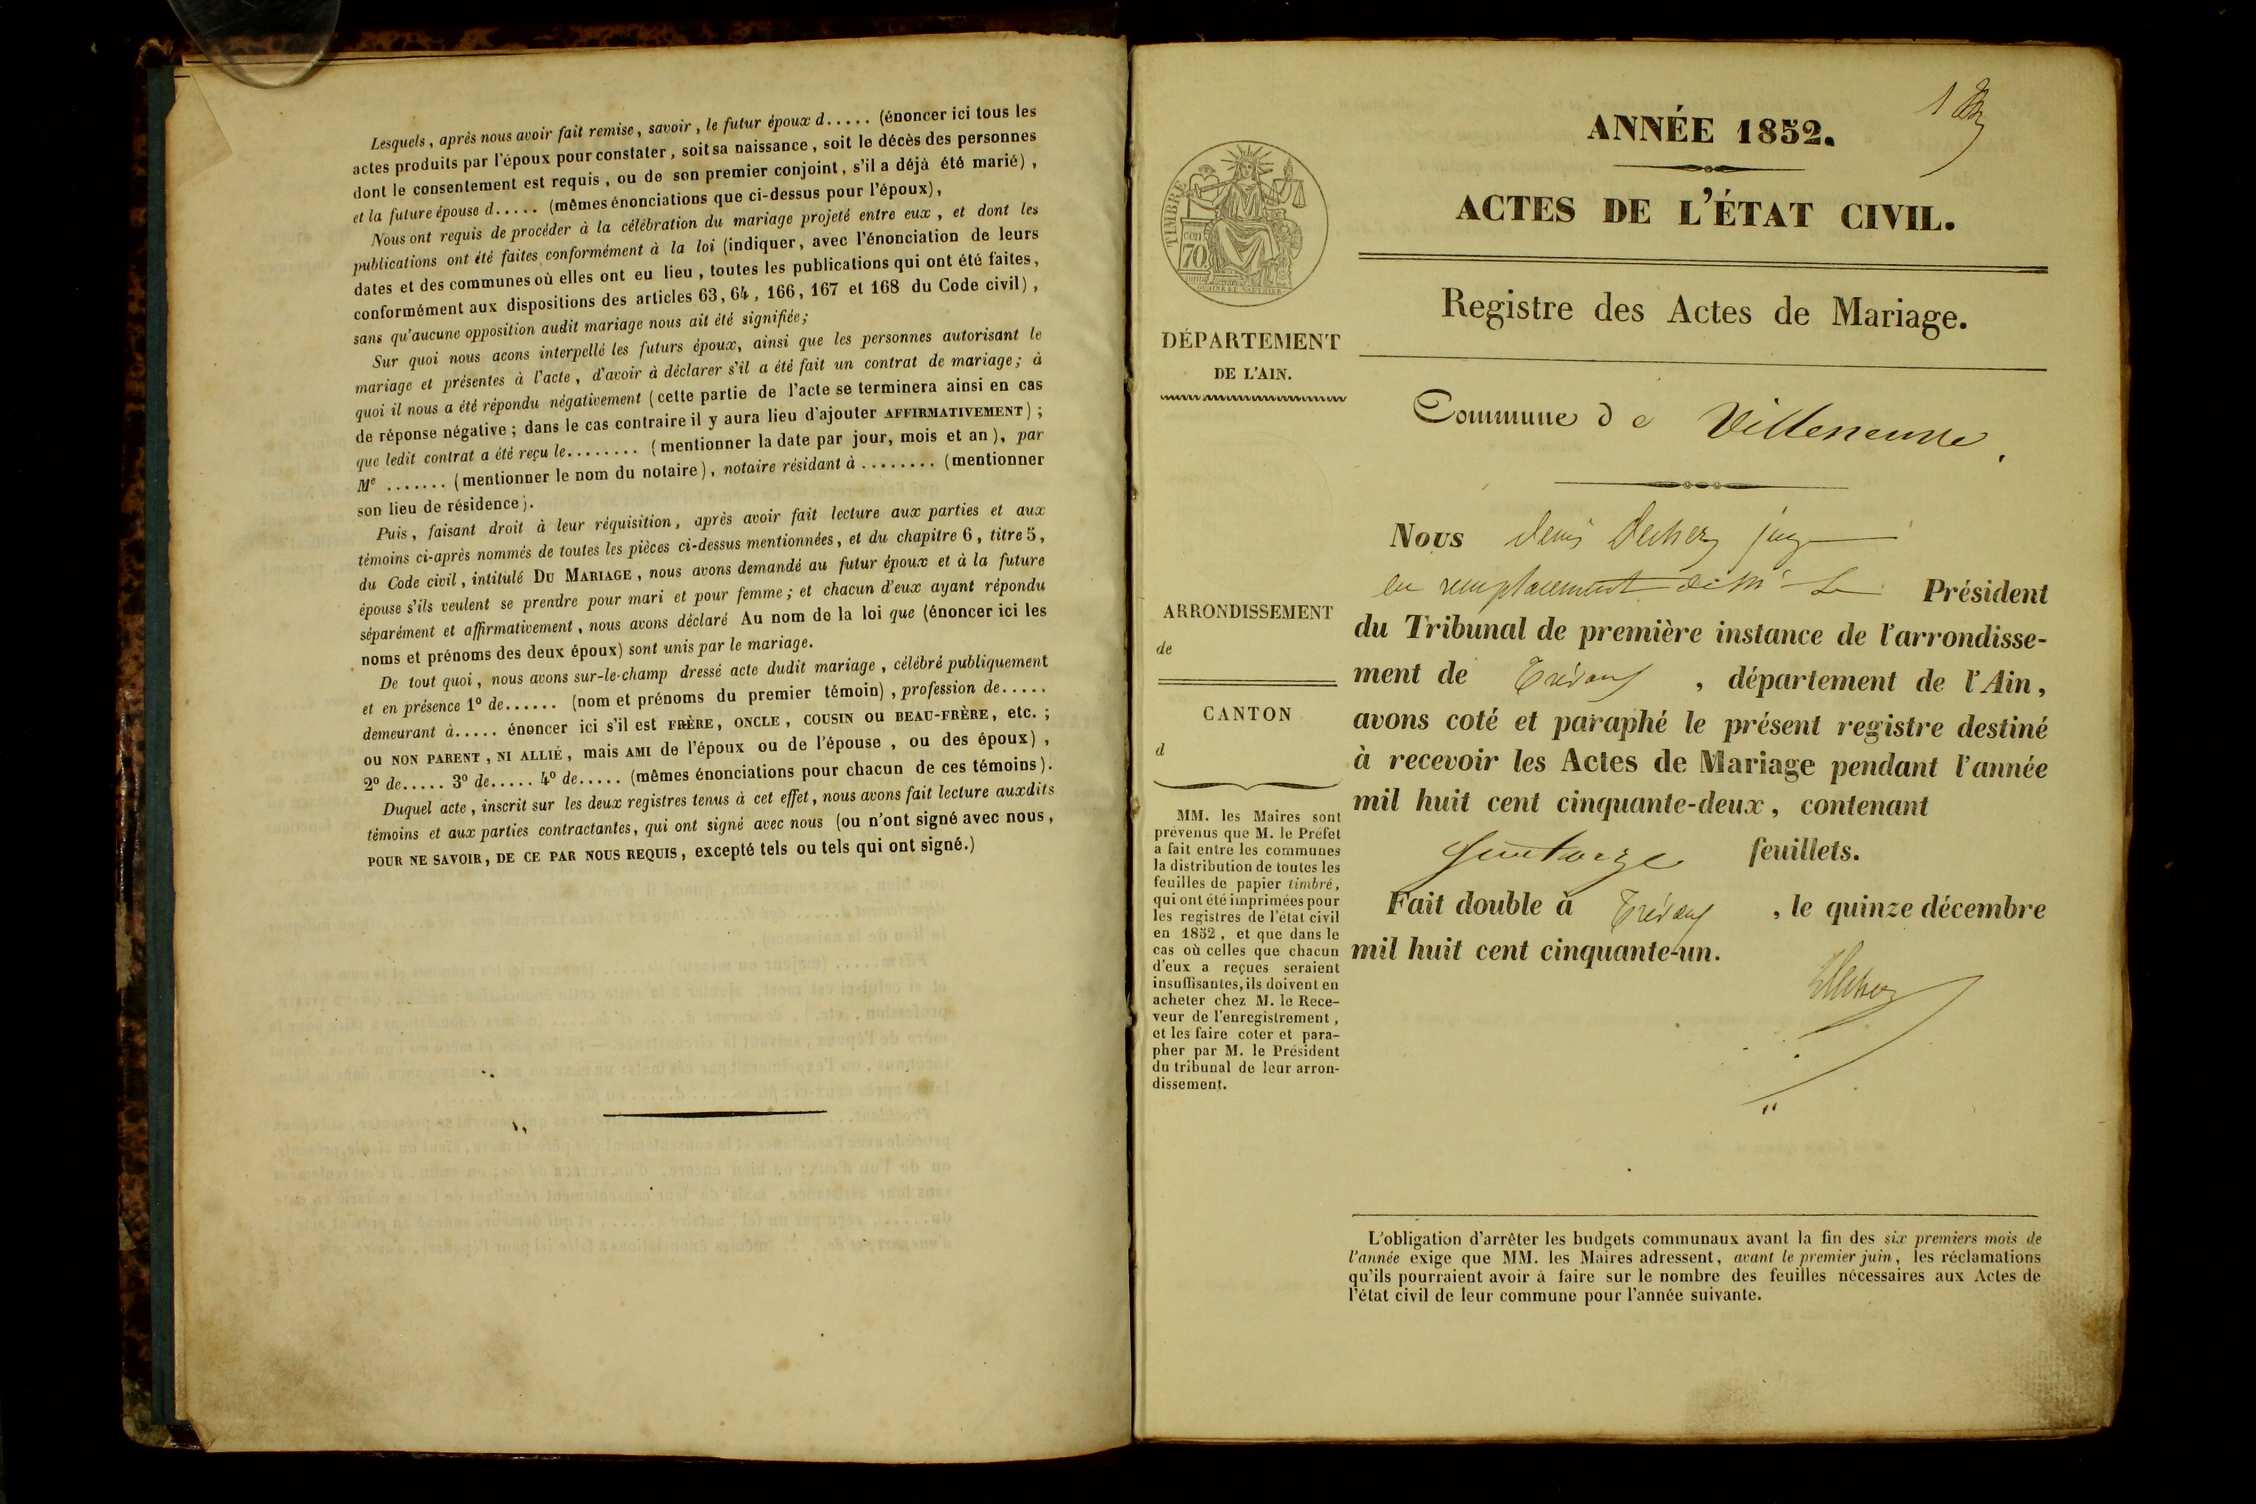 Lesquels, après nous avoir fait remise, savoir, le futur époux d..... (énoncer ici tous les
actes produits par l'époux pour constater, soit sa naissance, soit le décès des personnes
dont le consentement est requis, ou de son premier conjoint, s'il a déjà été marié),
et la future épouse d..... (mêmes énonciations que ci-dessus pour l'époux),
Nous ont requis de procéder à la célébration du mariage projeté entre eux, et dont les
publications ont été faites conformément à la loi (indiquer, avec l'énonciation de leurs
dates et des communes où elles ont eu lieu, toutes les publications qui ont été faites,
conformément aux dispositions des articles 63, 64, 166, 167 et 168 du Code civil),
sans qu'aucune opposition audit mariage nous ait été signifiée;
Sur quoi nous avons interpellé les futurs époux, ainsi que les personnes autorisant le
mariage et présentes à l'acte, d'avoir à déclarer s'il a été fait un contrat de mariage; à
quoi il nous a été répondu négativement (cette partie de l'acte se terminera ainsi en cas
de réponse négative; dans le cas contraire il y aura lieu d'ajouter AFFIRMATIVEMENT);
que ledit contrat a été reçu le........ (mentionner la date par jour, mois et an), par
Me ....... (mentionner le nom du notaire), notaire résidant à ........ (mentionner
son lieu de résidence).
Puis, faisant droit à leur réquisition, après avoir fait lecture aux parties et aux
témoins ci-après nommés de toutes les pièces ci-dessus mentionnées, et du chapitre 6, titre 5,
du Code civil, intitulé DU MARIAGE, nous avons demandé au futur époux et à la future
épouse s'ils veulent se prendre pour mari et pour femme; et chacun d'eux ayant répondu
séparément et affirmativement, nous avons déclaré Au nom de la loi que (énoncer ici les
noms et prénoms des deux époux) sont unis par le mariage.
De tout quoi, nous avons sur-le-champ dressé acte dudit mariage, célébré publiquement
et en présence 1º de...... (nom et prénoms du premier témoin), profession de.....
demeurant à..... énoncer ici s'il est FRÈRE, ONCLE, COUSIN ou BEAU-FRÈRE, etc.;
ou NON PARENT, NI ALLIÉ, mais AMI de l'époux ou de l'épouse, ou des époux),
2º de..... 3º de..... 4º de..... (mêmes énonciations pour chacun de ces témoins).
Duquel acte, inscrit sur les deux registres tenus à cet effet, nous avons fait lecture auxdits
témoins et aux parties contractantes, qui ont signé avec nous (ou n'ont signé avec nous,
POUR NE SAVOIR, DE CE PAR NOUS REQUIS, excepté tels ou tels qui ont signé.)
1
ANNÉE 1852.
ACTES DE L'ÉTAT CIVIL.
Registre des Actes de Mariage.
TIMBRE
70
DÉPARTEMENT
DE L'AIN.
ARRONDISSEMENT
de
CANTON
d
MM. les Maires sont
prévenus que M. le Préfet
a fait entre les communes
la distribution de toutes les
feuilles de papier timbré,
qui ont été imprimées pour
les registres de l'état civil
en 1852, et que dans le
cas où celles que chacun
d'eux a reçues seraient
insuffisantes, ils doivent en
acheter chez M. le Rece-
veur de l'enregistrement,
et les faire coter et para-
pher par M. le Président
du tribunal de leur arron-
dissement.
Commune de Villeneuve.
Nous Denis juge
en remplacement de Mr Le Président
du Tribunal de première instance de l'arrondisse-
ment de Trévoux, département de l'Ain,
avons coté et paraphé le présent registre destiné
à recevoir les Actes de Mariage pendant l'année
mil huit cent cinquante-deux, contenant
feuillets.
Fait double à Trévoux, le quinze décembre
mil huit cent cinquante-un.
L'obligation d'arrêter les budgets communaux avant la fin des six premiers mois de
l'année exige que MM. les Maires adressent, avant le premier juin, les réclamations
qu'ils pourraient avoir à faire sur le nombre des feuilles nécessaires aux Actes de
l'état civil de leur commune pour l'année suivante.